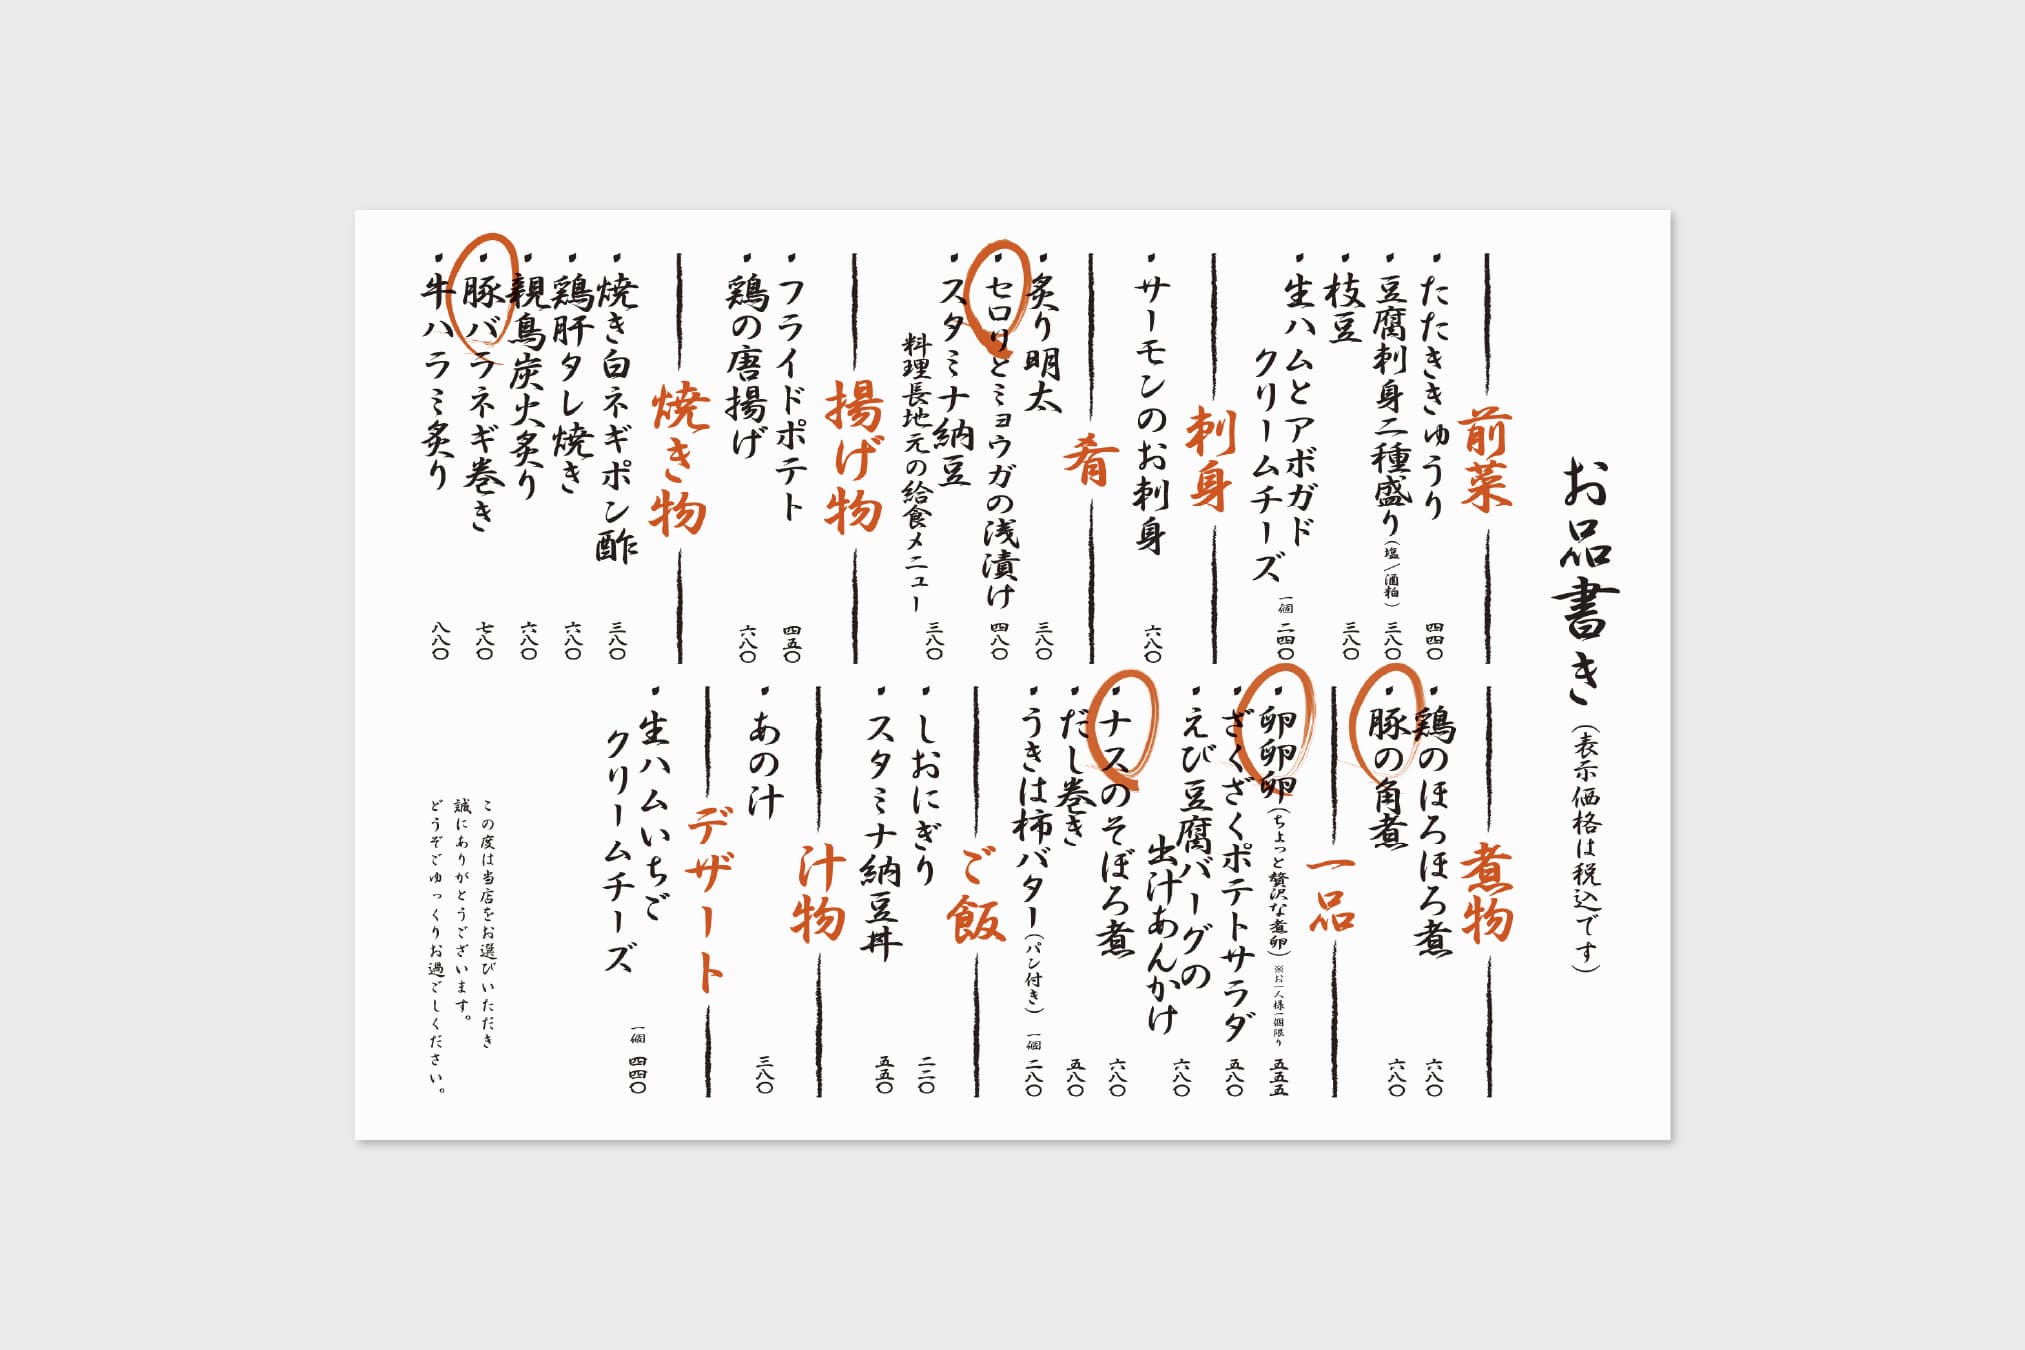 お品書き（表示価格は税込です）
前菜
・たたききゅうり 四四〇
・豆腐刺身二種盛り（塩／酒粕） 三八〇
・枝豆 三八〇
・生ハムとアボガド
クリームチーズ 一個 二四〇
刺身
・サーモンのお刺身 六八〇
肴
・炙り明太 三八〇
・セロリとミョウガの浅漬け 四八〇
・スタミナ納豆
料理長地元の給食メニュー 三八〇
揚げ物
・フライドポテト 四五〇
・鶏の唐揚げ 六八〇
焼き物
・焼き白ネギポン酢 三八〇
・鶏肝タレ焼き 六八〇
・親鳥炭火炙り 六八〇
・豚バラネギ巻き 七八〇
・牛ハラミ炙り 八八〇
煮物
・鶏のほろほろ煮 六八〇
・豚の角煮 六八〇
一品
・卵卵卵（ちょっと贅沢な煮卵）※お一人様一個限り 五五五
・ざくざくポテトサラダ 五八〇
・えび豆腐バーグの
出汁あんかけ 六八〇
・ナスのそぼろ煮 六八〇
・だし巻き 五八〇
・うきは柿バター（パン付き） 一個 二八〇
ご飯
・しおにぎり 二二〇
・スタミナ納豆丼 五五〇
汁物
・あの汁 三八〇
デザート
・生ハムいちご
クリームチーズ 一個 四四〇
この度は当店をお選びいただき
誠にありがとうございます。
どうぞごゆっくりお過ごしください。